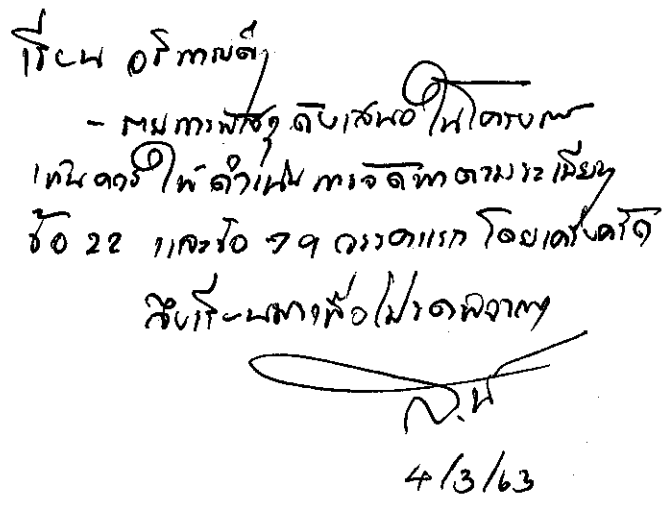 เรียน อธิการบดี
- ตามการพัสดุ ดังเสนอ ในโครงการ
เห็นควร ให้ ดำเนินการจัดหาตามระเบียบฯ
ข้อ 22 และข้อ 79 วรรคแรก โดยเคร่งครัด
จึงเรียนมาเพื่อโปรดพิจารณา
4/3/63